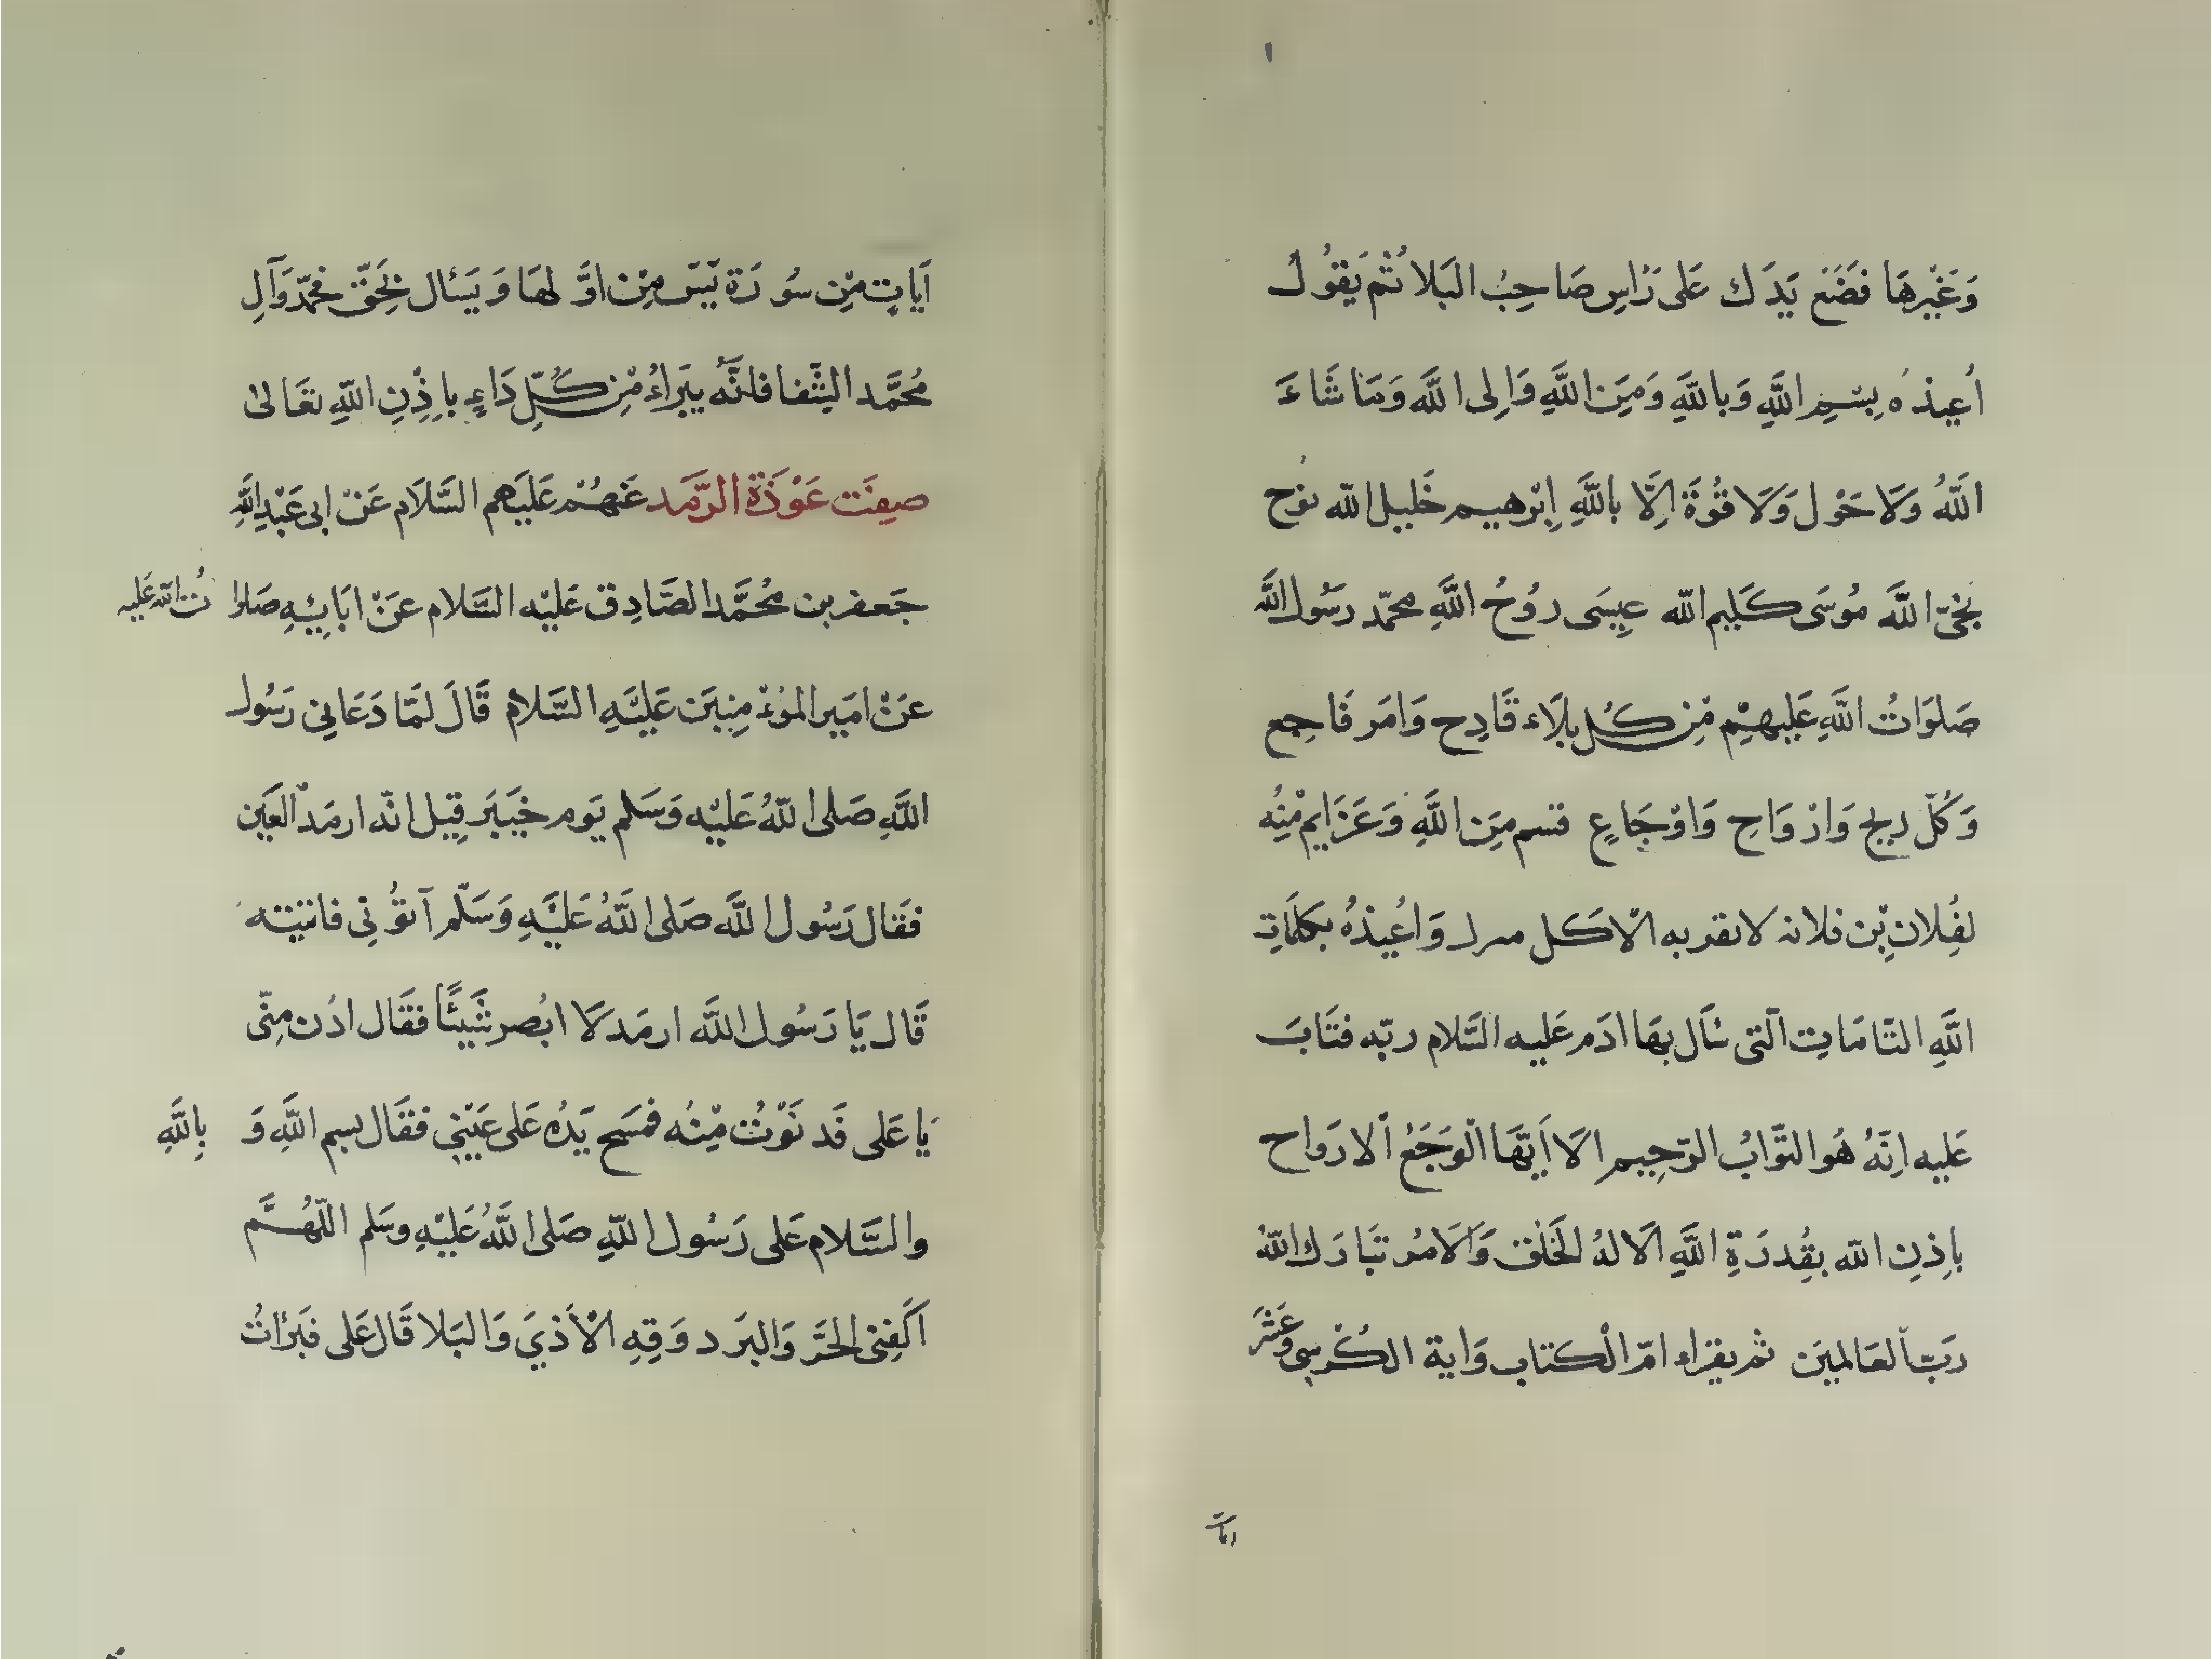 ١
وَغَيْرِهَا فَضَعْ يَدَكَ عَلى رَاسِ صَاحِبُ البَلا ثُمَّ يَقُولُ
أُعِيذُهُ بِسْمِ اللَّهِ وَبِاللَّهِ وَمِنَ اللَّهِ وَاِلى اللَّه وَمَا شَاءَ
اللَّهُ وَلَا حَوْلَ وَلَا قُوَّةَ اِلَّا بِاللَّهِ اِبْرهيم خَلِيل اللّه نوُح
نَجِىّ اللَّه مُوسَى كَلِيم اللّه عِيسَى رُوحُ اللَّهِ محمّد رسَوُل اللَّه
صَلوَاتُ اللَّهِ عَلَيهِمْ مِنْ كُل بلَاء فَادِح وَامَر فَاجِع
وَكُلّ ريح وَارْوَاحِ وَاوْجَاعِ قسم مِنَ اللَّهِ وَعَزَايم مِنْهُ
لفُِلانِ بْنِ فلانه لا نقربه الّا كل وَاُعُيذهُ بكَلمَاتِ
اللَّهِ التّامَاتِ الّتى سَأَل بهَا ادَم عَليه السَّلام ربّه فَتَابَ
عَليه اِنَّهُ هُو التَّوَّابُ الرَّحِيم الَا اَيّتهَا الوَجَعُ الارَواح
باِذنِ اللّه بقُِدرَةِ اللَّهِ الَا لهُ الخَلْق وَالَامُر تبَارَك اللّهُ
ربّ العَالمينَ ثم يقراء امّ الْكتاب وَاية الكُرسِى وعَشَرَ
ايات
اَياتٍ مِّن سُورَة يَسَ مِنْ اوَّلهَا وَيَسئال بَحِقّ مُحمّد وَآلِ
مُحَمَّد الشّفا فانّهُ يبَراءُ مْنِ كُلّ دَاءٍ باِذْنِ اللّهِ تعَالىٰ
صِفَت عَوْذَة الرَّمَد عَنهُمْ عَليَهم السَّلَام عَنْ ابى عَبْدِ اللَّهِ
جَعفر بن مُحمَّد الصَّادِق عَليْه السَّلام عَنْ ابَايئِهِ صَلوات اللّه عَليه
عَنْ امَير المؤُمِنِيَن عَليَهِ السَّلام قَالَ لمَّا دَعَانِى رَسُول
اللَّهِ صَلى اللّهُ عَليْه وَسَلم يَوم خَيَبَر قِيل انّه ارمَد العَين
فَقال رَسُول اللَّه صَلى اللَّهُ عَليَهِ وَسَلّم آتوُنِى فاتيته
قَال يَا رَسُول اللَّه ارمَد لَا ابُصر شَيئًا فقَال ادُن مِنّى
يَا عَلى قَد نَوْتُ مِنْه فمَسَح يَدَهُ عَلى عَيْنِى فقَال بسم اللَّهِ وَ بِاللَّهِ
والسَّلام عَلى رَسُول اللّهِ صَلى اللَّهُ عَليْهِ وسَلم اللّهُمَّ
اَكَفِنى الحَرَّ وَالبرَد وَقِهِ الْاَذيَ وَالبَلا قَال عَلى فبَرَاتُ